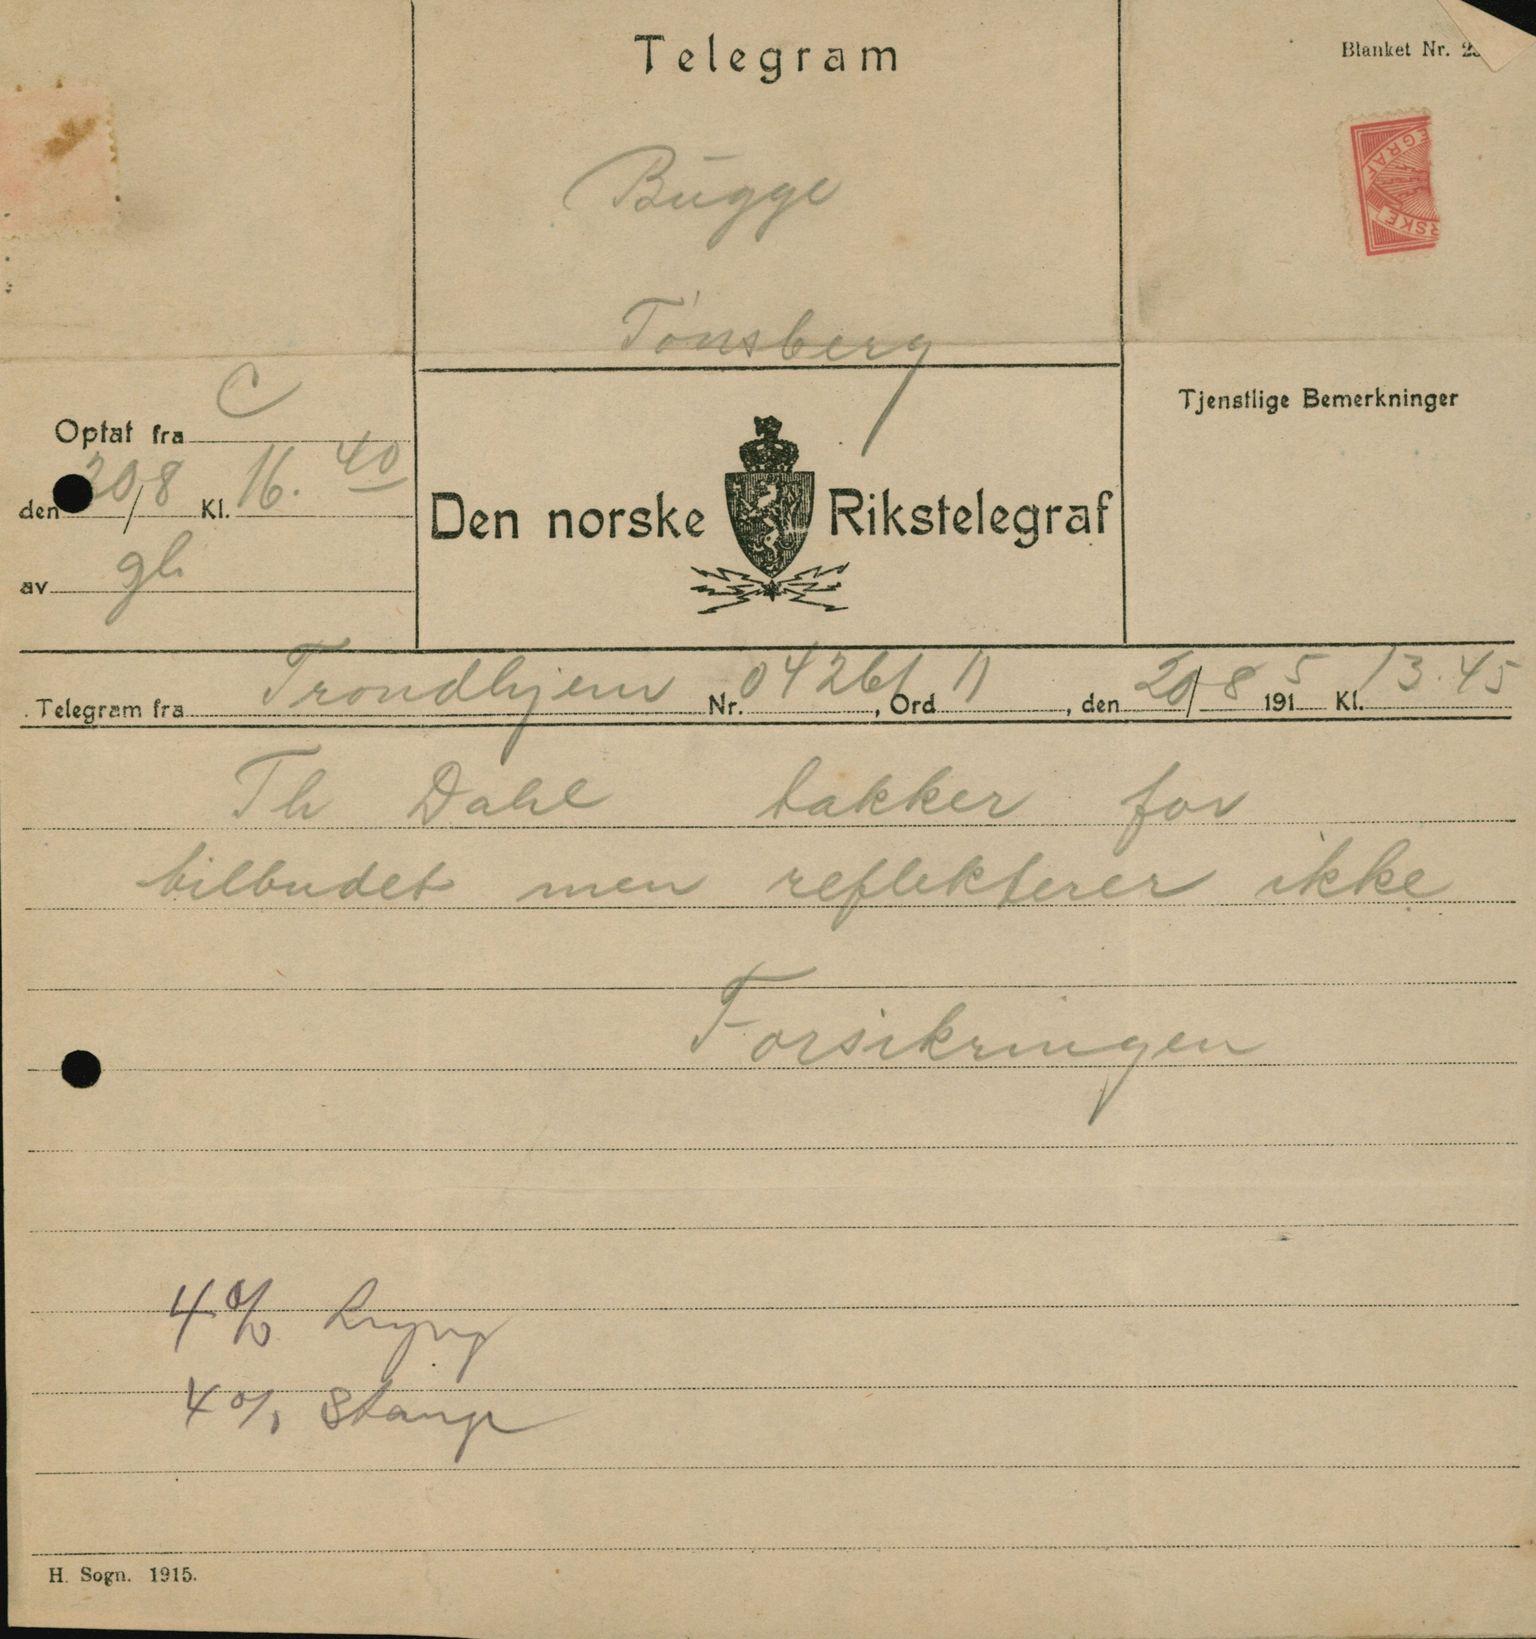 Telegram
Blanket Nr.
EGRAF
RSKE
Bugge
Tønsberg
Optat fra C
den 20/8 Kl. 16.40
av gh
Tjenstlige Bemerkninger
Den norske Rikstelegraf
Telegram fra Trondhjem Nr. 04261, Ord 11, den 20/8 1915 Kl. 13.45
Th Dahl takker for
tilbudet men reflekterer ikke
Forsikringen
4%
4% Stange
H. Sogn. 1915.